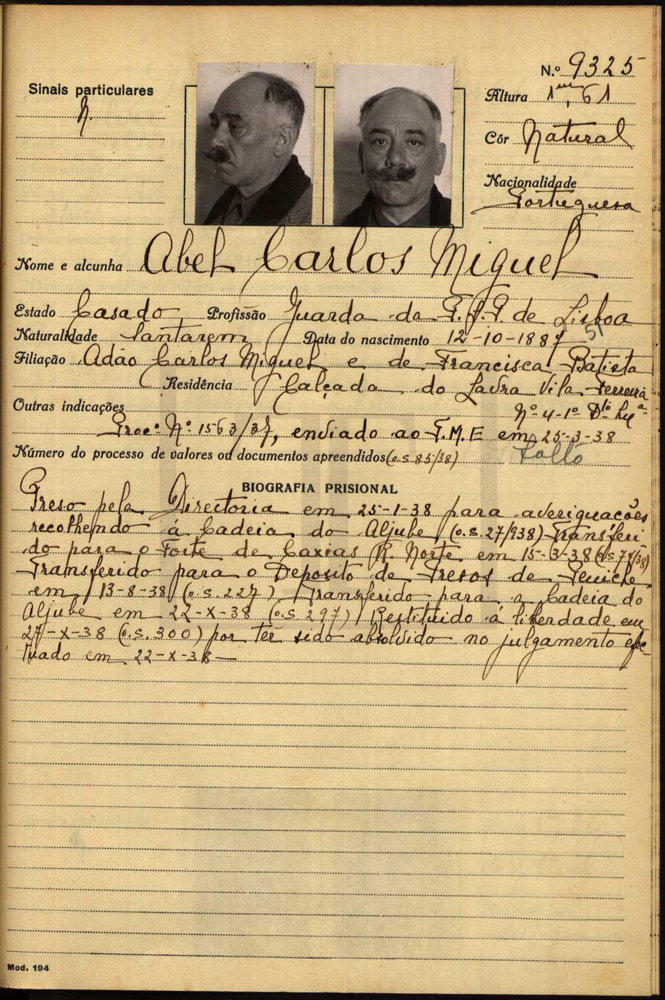 N.º 9325
Sinais particulares
Altura 1m,61
Côr Natural
Nacionalidade
Portuguesa
Nome e alcunha Abel Carlos Miguel
Estado Casado Profissão Guarda da P.S.P. de Lisboa
Naturalidade Santarem Data do nascimento 12-10-1887
Filiação Adão Carlos Miguel e de Francisca Batista
Residência Calçada do Lavra Vila Ferreira
Outras indicações Nº 4-1º Dto
Procº Nº 1563/37, enviado ao T.M.E em 25-3-38
Número do processo de valores ou documentos apreendidos (o.s 85/38)
BIOGRAFIA PRISIONAL
Preso pela Directoria em 25-1-38 para averiguações
recolhendo á Cadeia do Aljube (o.s. 27/938) Transferi
do para o Forte de Caxias R. Norte em 15-3-38
Transferido para o Deposito de Presos de Peniche
em 13-8-38 (o.s. 227) Transferido para a Cadeia do
Aljube em 22-X-38 (o.s. 297) Restituido á liberdade em
27-X-38 (o.s. 300) por ter sido absolvido no julgamento efe
tuado em 22-X-38
Mod. 194